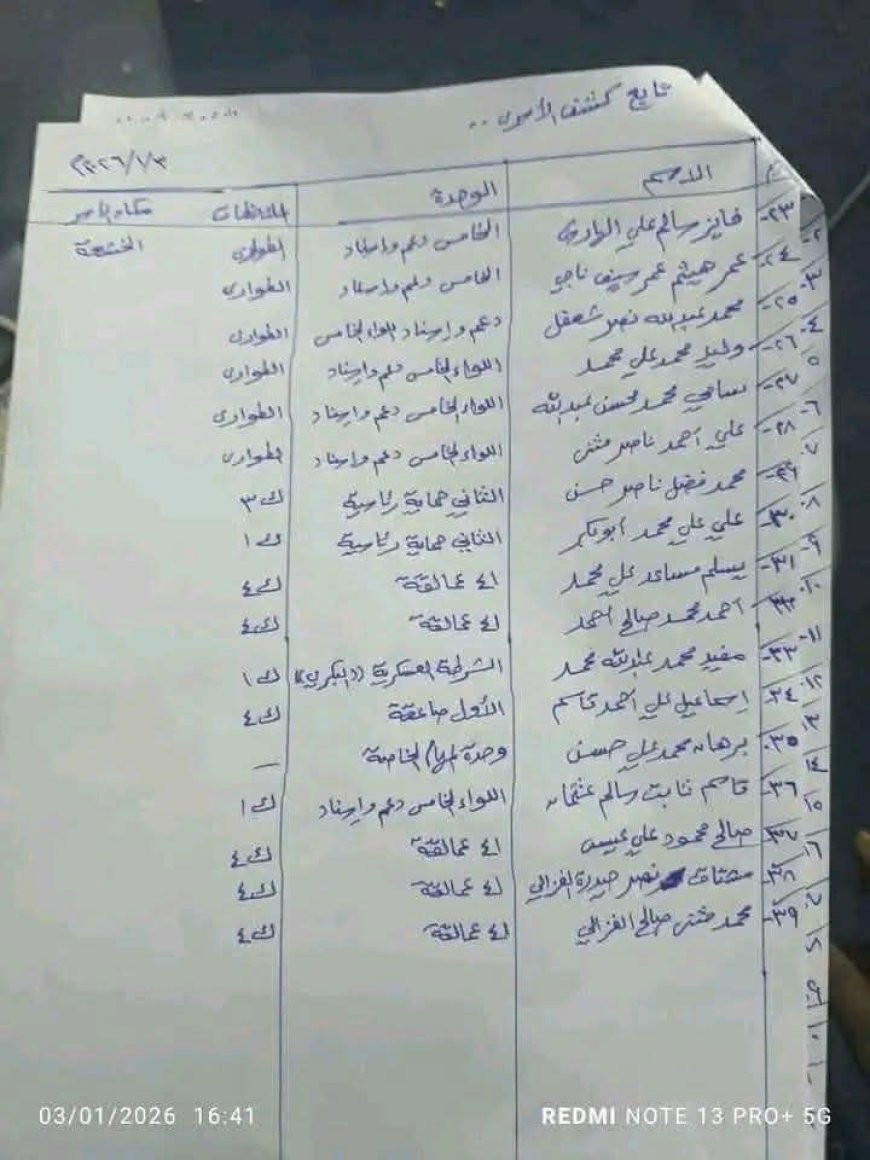 تابع كشف الأسرى ..
٢٠٢٦/١/٣
م الاسم الوحدة الملاحظات مكان الأسر
٢٣- فايز سالم علي الهادي الخامس دعم وإسناد الطوارئ الخشعة
٢٤- عمر هيثم عمر سيف ناجي الخامس دعم وإسناد الطوارئ
٢٥- محمد عبدالله نصر شعفل دعم وإسناد اللواء الخامس الطوارئ
٢٦- وليد محمد علي محمد اللواء الخامس دعم وإسناد الطوارئ
٢٧- سامي محمد محسن عبدالله اللواء الخامس دعم وإسناد الطوارئ
٢٨- علي احمد ناصر مثنى اللواء الخامس دعم وإسناد الطوارئ
٢٩- محمد فضل ناصر حسن الثاني حماية رئاسية ك ٣
٣٠- علي علي محمد ابوبكر الثاني حماية رئاسية ك ١
٣١- يسلم مساعد علي محمد ٤ عمالقة ك ٤
٣٢- احمد محمد صالح احمد ٤ عمالقة ك ٤
٣٣- مفيد محمد عبدالله محمد الشرطة العسكرية ((البكري)) ك ١
٣٤- إسماعيل علي احمد قاسم الأول صاعقة ك ٤
٣٥- برهان محمد علي حسن وحدة المهام الخاصة —
٣٦- قاسم ثابت سالم عثمان اللواء الخامس دعم وإسناد ك ١
٣٧- صالح محمود علي عيسى ٤ عمالقة ك ٤
٣٨- مشتاق نصر حيدرة الغزالي ٤ عمالقة ك ٤
٣٩- محمد مثنى صالح الغزالي ٤ عمالقة ك ٤
03/01/2026 16:41
REDMI NOTE 13 PRO+ 5G